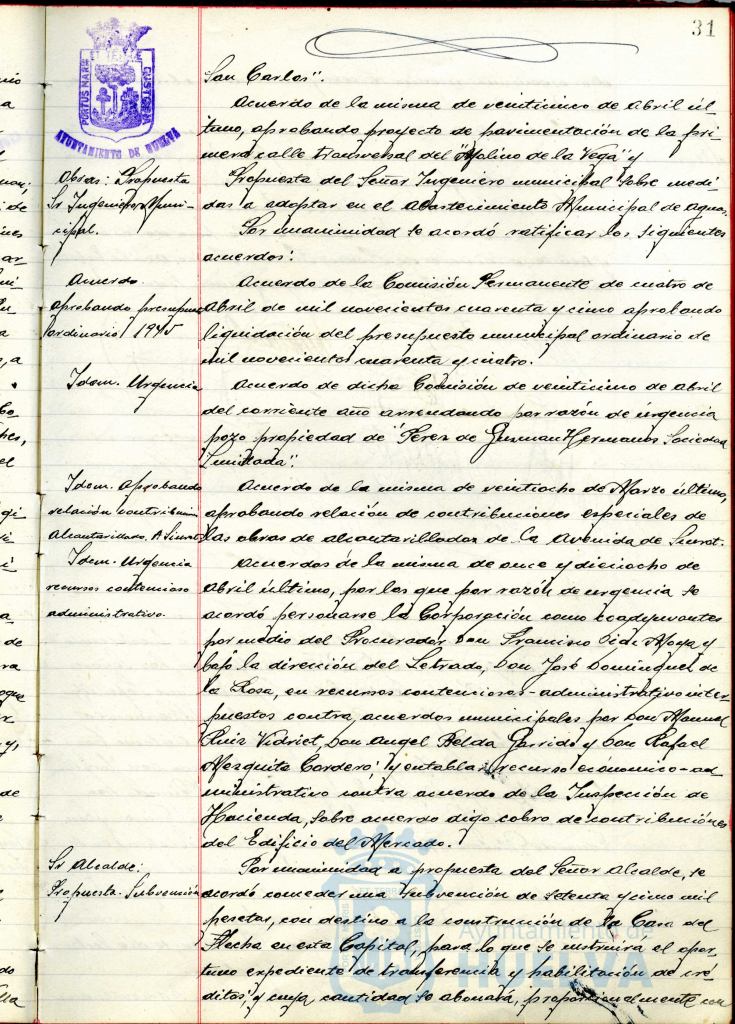 31
PORTUS MARIS ET TERRE CUSTODIA
AYUNTAMIENTO DE HUELVA
San Carlos".
Acuerdo de la misma de veinticinco de Abril úl-
timo, aprobando proyecto de pavimentación de la pri-
mera calle transversal del "Molino de la Vega" y
Obras: Propuesta
Sr Ingeniero Muni-
cipal.
Propuesta del Señor Ingeniero municipal sobre medi-
das a adoptar en el abastecimiento Municipal de aguas.
Por unanimidad se acordó ratificar los siguientes
acuerdos:
Acuerdo.
aprobando presupues
ordinario 1945
Acuerdo de la Comisión Permanente de cuatro de
Abril de mil novecientos cuarenta y cinco aprobando
liquidación del presupuesto municipal ordinario de
mil novecientos cuarenta y cuatro.
Idem. Urgencia
Acuerdo de dicha Comisión de veinticinco de Abril
del corriente año arrendando por razón de urgencia
pozo propiedad de "Perez de Guzman Hermanos Sociedad
Limitada".
Idem. Aprobando
relación contribución
Alcantarillado. A Siurot
Acuerdo de la misma de veintiocho de Marzo último,
aprobando relación de contribuciones especiales de
las obras de alcantarillados de la Avenida de Siurot.
Idem. Urgencia
recursos contencioso
administrativo.
Acuerdos de la misma de once y dieciocho de
Abril último, por los que por razón de urgencia se
acordó personarse la Corporación como coadyuvantes
por medio del Procurador Don Francisco Moya y
bajo la dirección del Letrado, Don José Dominguez de
la Rosa, en recursos contenciosos-administrativo inter-
puestos contra acuerdos municipales por Don Manuel
Ruiz Vidriet, Don Angel Belda Garrido y Don Rafael
Mezquita Cordero; y entablar recurso económico-ad-
ministrativo contra acuerdo de la Inspección de
Hacienda, sobre acuerdo digo cobro de contribuciones
del Edificio del Mercado.
Sr Alcalde:
Propuesta. Subvención
Por unanimidad a propuesta del Señor Alcalde, se
acordó conceder una subvención de setenta y cinco mil
pesetas, con destino a la construcción de la Casa del
Flecha en esta Capital, para lo que se instruirá el opor-
tuno expediente de transferencia y habilitación de cré-
ditos y cuya cantidad se abonará, proporcionalmente con
Ayuntamiento de
HUELVA